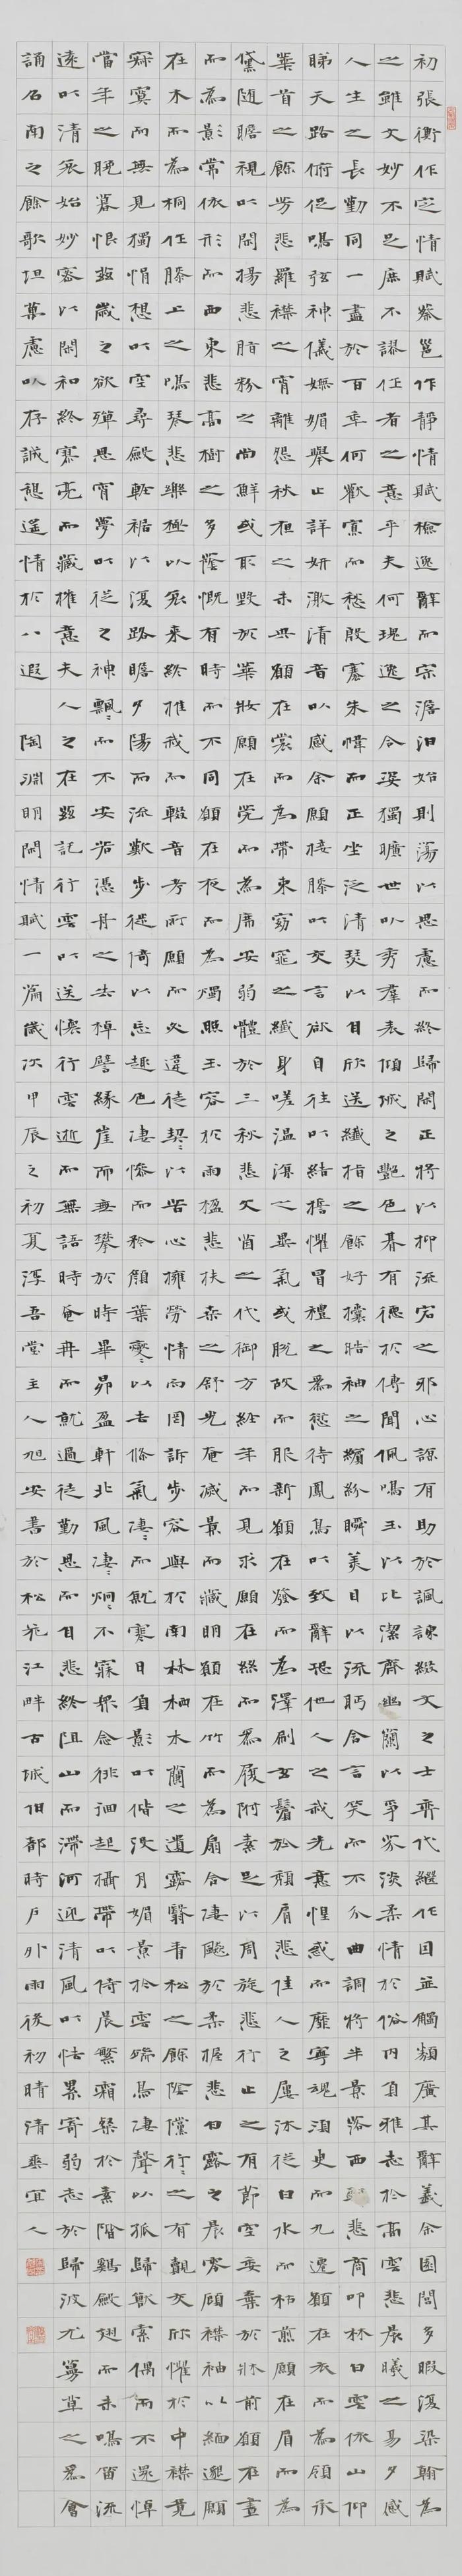 初張衡作定情賦蔡邕作靜情賦檢逸辭而宗澹泊始則蕩以思慮而終歸閑正將以抑流宕之邪心諒有助於諷諫綴文之士奕代繼作因並觸類廣其辭義余園閭多暇復染翰為
之雖文妙不足庶不謬作者之意乎夫何瑰逸之令姿獨曠世以秀羣表傾城之艷色朞有德於傳聞佩鳴玉以比潔齊幽蘭以爭芬淡柔情於俗內負雅志於高雲悲晨曦之易夕感
人生之長勤同一盡於百年何歡寡而愁殷褰朱幃而正坐泛清瑟以自欣送纖指之餘好攘皓袖之繽紛瞬美目以流眄含言笑而不分曲調將半景落西軒悲商叩林白雲依山仰
睇天路俯促鳴弦神儀嫵媚舉止詳妍激清音以感余願接膝以交言欲自往以結誓懼冒禮之為愆待鳳鳥以致辭恐他人之我先意惶惑而靡寧魂須臾而九遷願在衣而為領承
華首之餘芳悲羅襟之宵離怨秋夜之未央願在裳而為帶束窈窕之纖身嗟溫涼之異氣或脫故而服新願在發而為澤刷玄鬢於頹肩悲佳人之屢沐從白水而枯煎願在眉而為
黛隨瞻視以閑揚悲脂粉之尚鮮或取毀於華妝願在莞而為席安弱體於三秋悲文茵之代御方經年而見求願在絲而為履附素足以周旋悲行止之有節空委棄於牀前願在晝
而為影常依形而西東悲高樹之多蔭慨有時而不同願在夜而為燭照玉容於兩楹悲扶桑之舒光奄滅景而藏明願在竹而為扇含淒飆於柔握悲白露之晨零顧襟袖以緬邈願
在木而為桐作膝上之鳴琴悲樂極以哀來終推我而輟音考所願而必違徒契〻以苦心擁勞情而罔訴步容與於南林栖木蘭之遺露翳青松之餘陰儻行〻之有覿交欣懼於中襟竟
寂寞而無見獨悁想以空尋斂輕裾以復路瞻夕陽而流歎步徙倚以忘趣色淒慘而矜顏葉燮〻以去條氣淒〻而就寒日負影以偕沒月媚景於雲端鳥淒聲以孤歸獸索偶而不還悼
當年之晚暮恨茲歲之欲殫思宵夢以從之神飄〻而不安若憑舟之失棹譬緣崖而無攀於時畢昴盈軒北風淒〻炯〻不寐衆念徘徊起攝帶以伺晨繁霜粲於素階鷄斂翅而未鳴笛流
遠以清哀始妙密以閑和終寥亮而藏摧意夫人之在茲託行雲以送懷行雲逝而無語時奄冉而就過徒勤思而自悲終阻山而滯河迎清風以怯累寄弱志於歸波尤蔓草之為會
誦召南之餘歌坦萬慮以存誠憩遙情於八遐 陶淵明閑情賦一篇歲次甲辰之初夏淳吾堂主人旭安書於松花江畔古城伯都時戶外雨後初晴清爽宜人